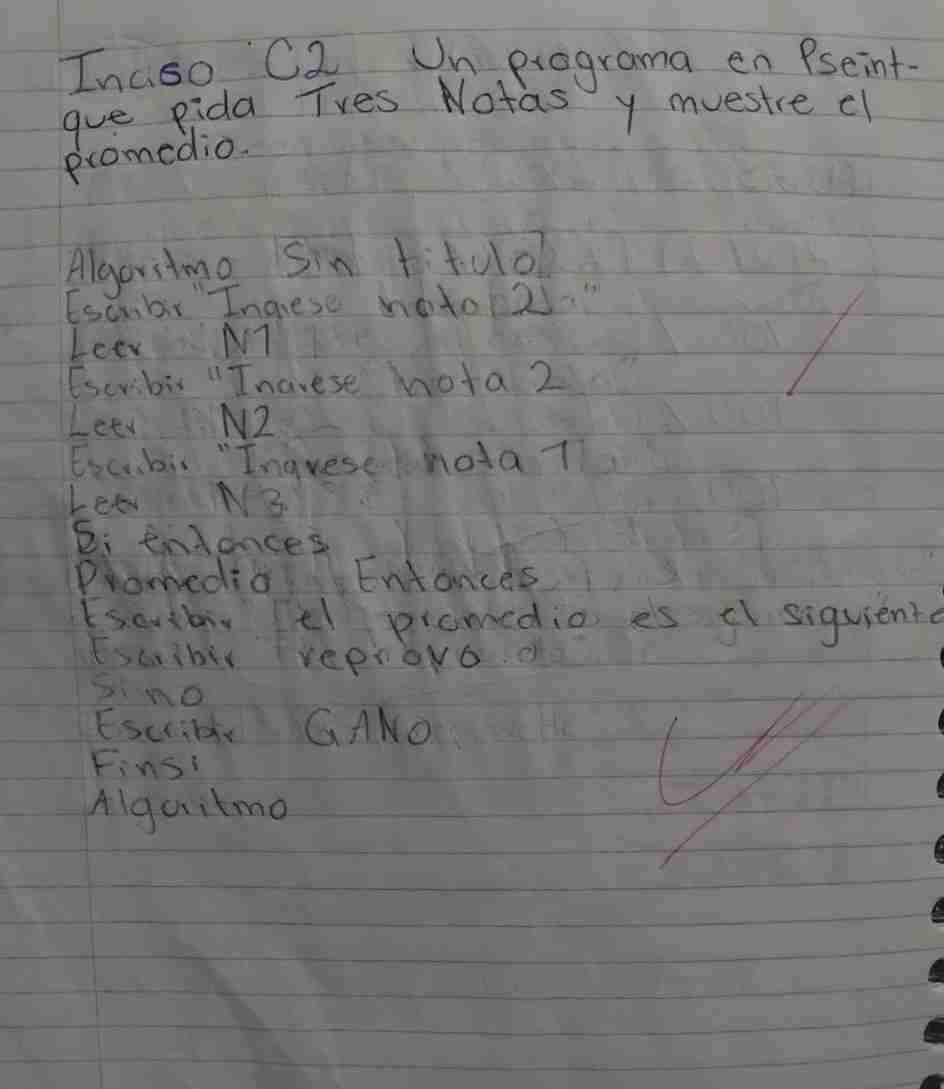 Inciso C2 Un programa en Pseint-
que pida Tres Notas y muestre el
promedio.
Algoritmo Sin titulo
Escribir "Ingrese nota 2."
Leer N1
Escribir "Ingrese nota 2 "
Leer N2
Escribir "Ingrese nota 1
Leer N3
Si entonces
Promedio Entonces
Escribir el promedio es el siguiente
Escribir reprovo
Sino
Escribir GANO
Finsi
Algoritmo